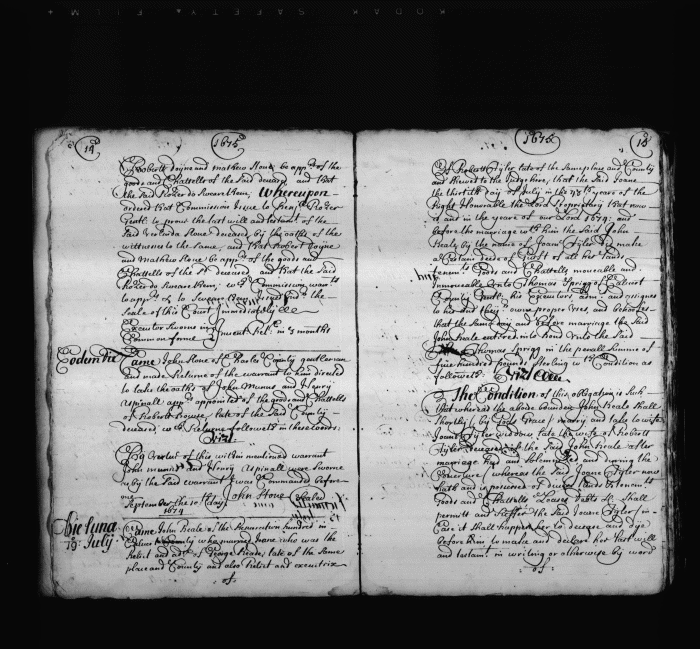 14
1675
Robert doyne and mathew Stone be app.rs of the
goods and Chattells of the Said deceased and that
the Said Rozer do Sweare them; Whereupon
ordered that Commission issue to Rozer
Gent. to prove the last will and testam.t of the
Said Verlinda Stone deceased by the oathes of the
wittnesses to the same, and that Robert doyne
and mathew Stone be app.rs of the goods and
Chattells of the S.d deceased and that the Said
Rozer do sweare them; w.ch Commission
to app.rs & to Sweare
Seale of this Court Immediately &c
Executor Sworne in
Common forme in 3 months
Eodem die
Came John Stone of Charles County gentleman
and made Returne of the warrant to him directed
to take the oathes of John Munns and Henry
Aspinall app.rs appointed of the goods and Chattells
of Robert late of the Said County
deceased, w.ch Returne followeth in these words.
Vizt:
By vertue of this within mentioned warrant
John munns and Henry Aspinall were Sworne
as by the Said warrant I was Commanded before
me John Stone
September the 10th day
1674
Die luna
19 July
Came John Beale of the
County who married Joane who was the
Relict and of George late of the Same
place and County and also Relict and executrix
of
1675
15
of Robert Tyler late of the Same place and County
and Shewed to the Judge here, that the Said Joane
the thirtith day of July in the yeare of the
Right Honourable the Lord Proprietary that now
is and in the yeare of our Lord 1674. and
before the marriage w.th him the Said John
Beale by the name of Joane Tyler did make
a Certain deede of Guift of all her Lands
tenem.ts Goods and Chattells moveable and
Immoveable Unto Thomas Sprigg of Calvert
County Gent. his Executors adm. and assignes
to his and their owne proper Use, and behoofes
that the Same day and before marriage the Said
John Beale entered into bond Unto the Said
Thomas Sprigg in the penall Summe of
five hundred pounds Sterling w.th Condition as
followeth. Vizt
The Condition of this obligation is Such
that whereas the above bounden John Beale Shall
Shortly by Gods Grace marry and take to wife
Joane Tyler widdow late the wife of Robert
Tyler deceased if the Said John Beale after
marriage had and Solemnized and during the
Coverture (whereas the Said Joane Tyler now
hath and is possessed of divers Lands & tenem.ts
Goods and Chattells Leases debts &c Shall
permitt and Suffer the Said Joane Tyler, in
Case it Shall happen her to decease and dye
before him to make and declare her last will
and testam.t in writing or otherwise by word
of